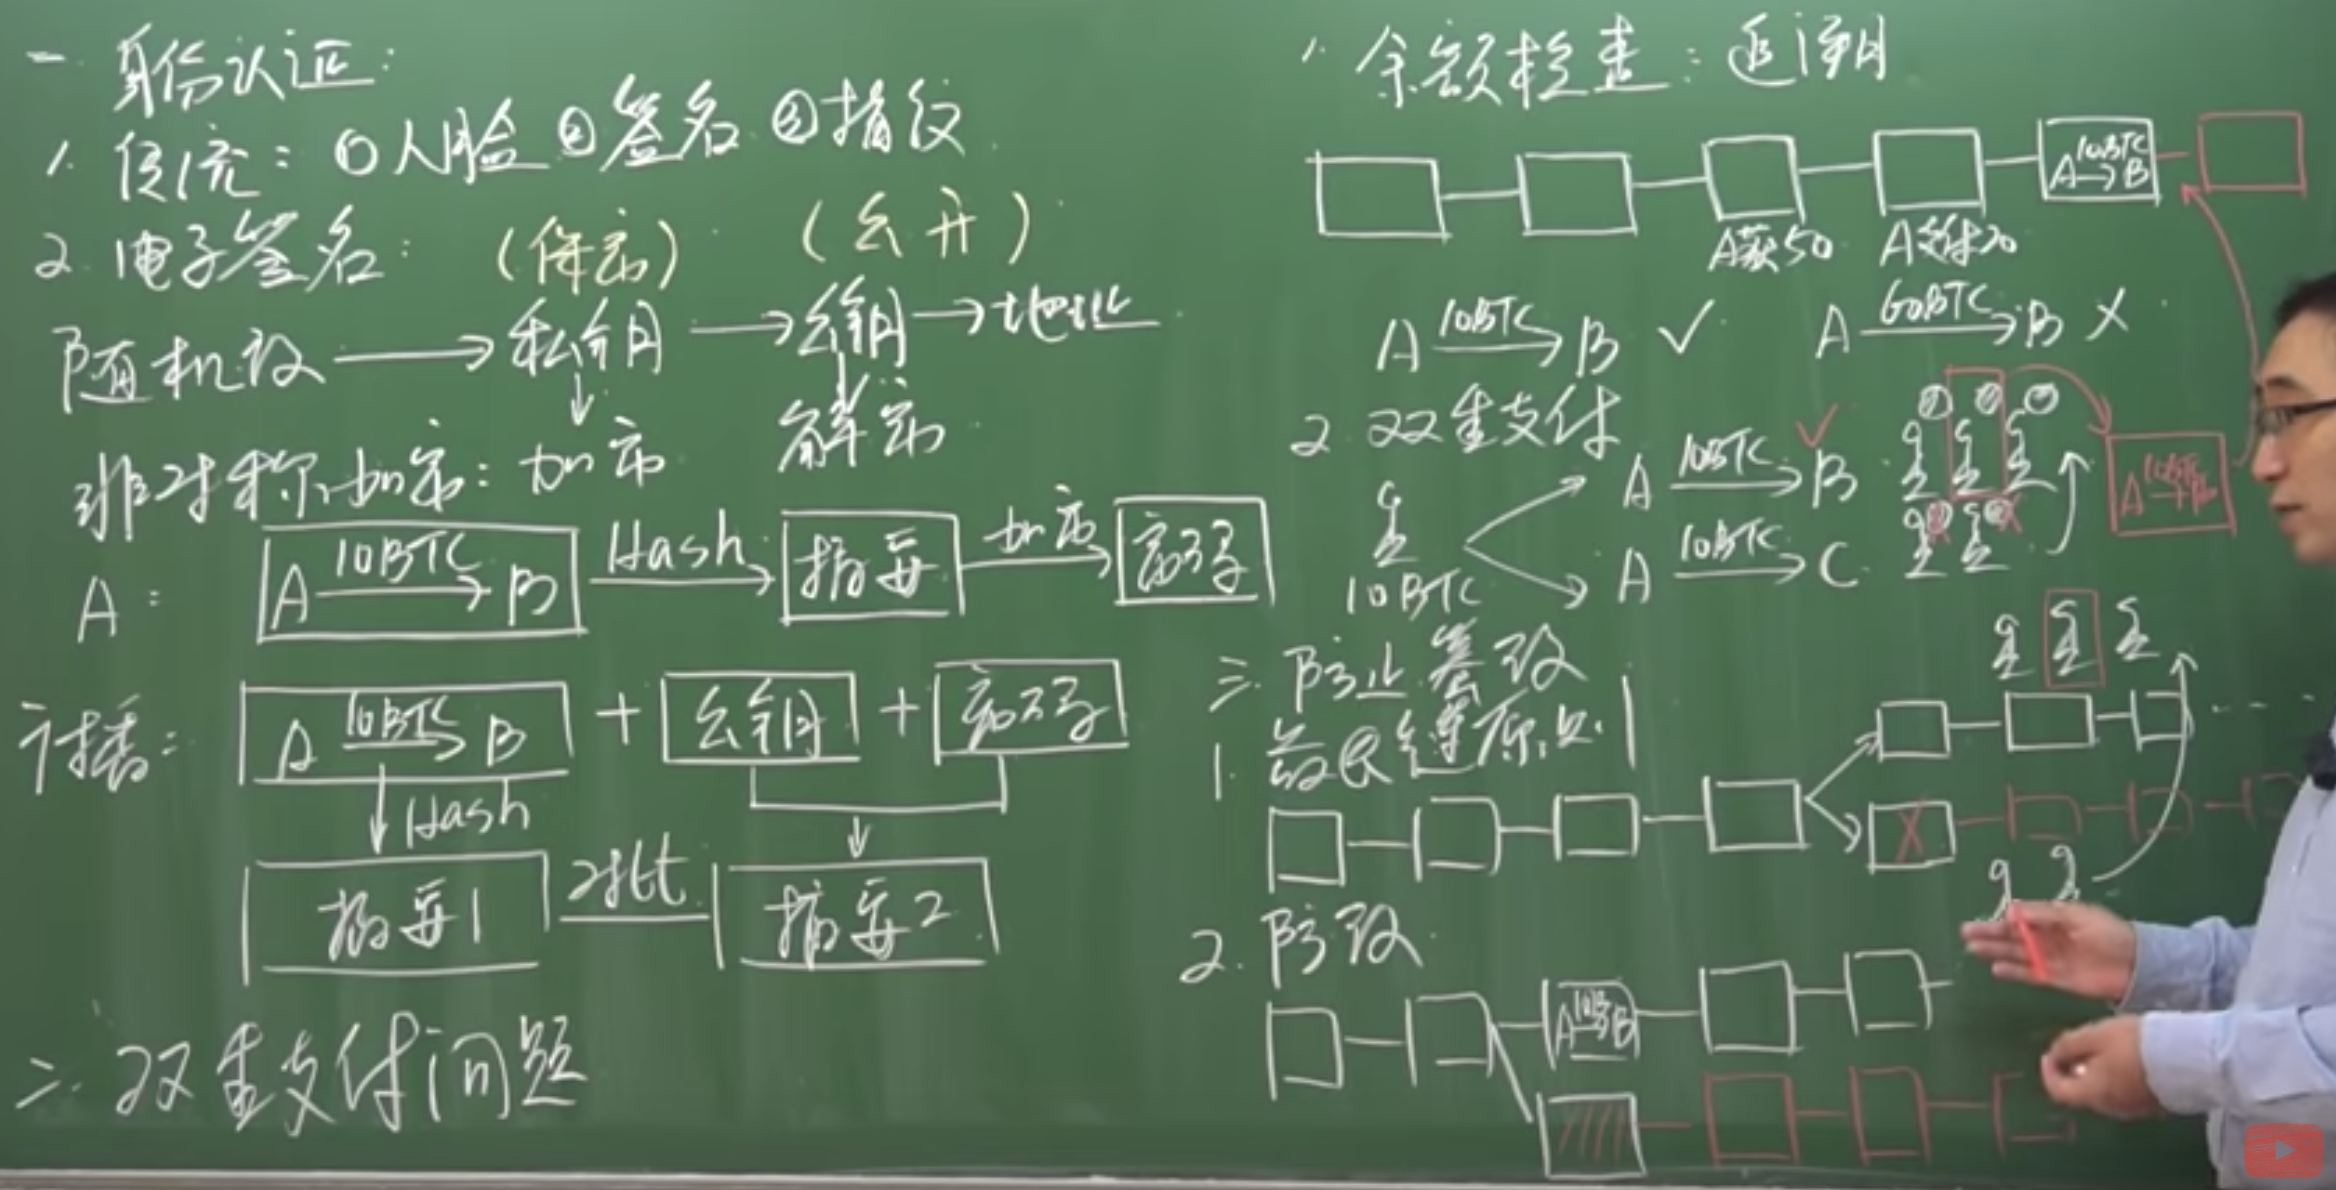 一. 身份认证:
1. 传统: ①人脸 ②签名 ③指纹
2. 电子签名: (保密) (公开)
随机数 → 私钥 → 公钥 → 地址
↓ ↓
非对称加密: 加密 解密
A: A 10BTC→ B Hash→ 摘要 加密→ 密码
广播: A 10BTC→ B + 公钥 + 密码
↓ Hash ↓
摘要1 对比 摘要2
二. 双重支付问题
1. 余额检查: 追溯
A 10BTC→ B
A获50 A支付20
A 10BTC→ B ✓ A 60BTC→ B ×
2. 双重支付
A 10BTC→ B ✓
10BTC
A 10BTC→ C
A 10BTC→ B
三. 防止篡改
1. 最长链原则
X
2. 防改
A 10B→ B